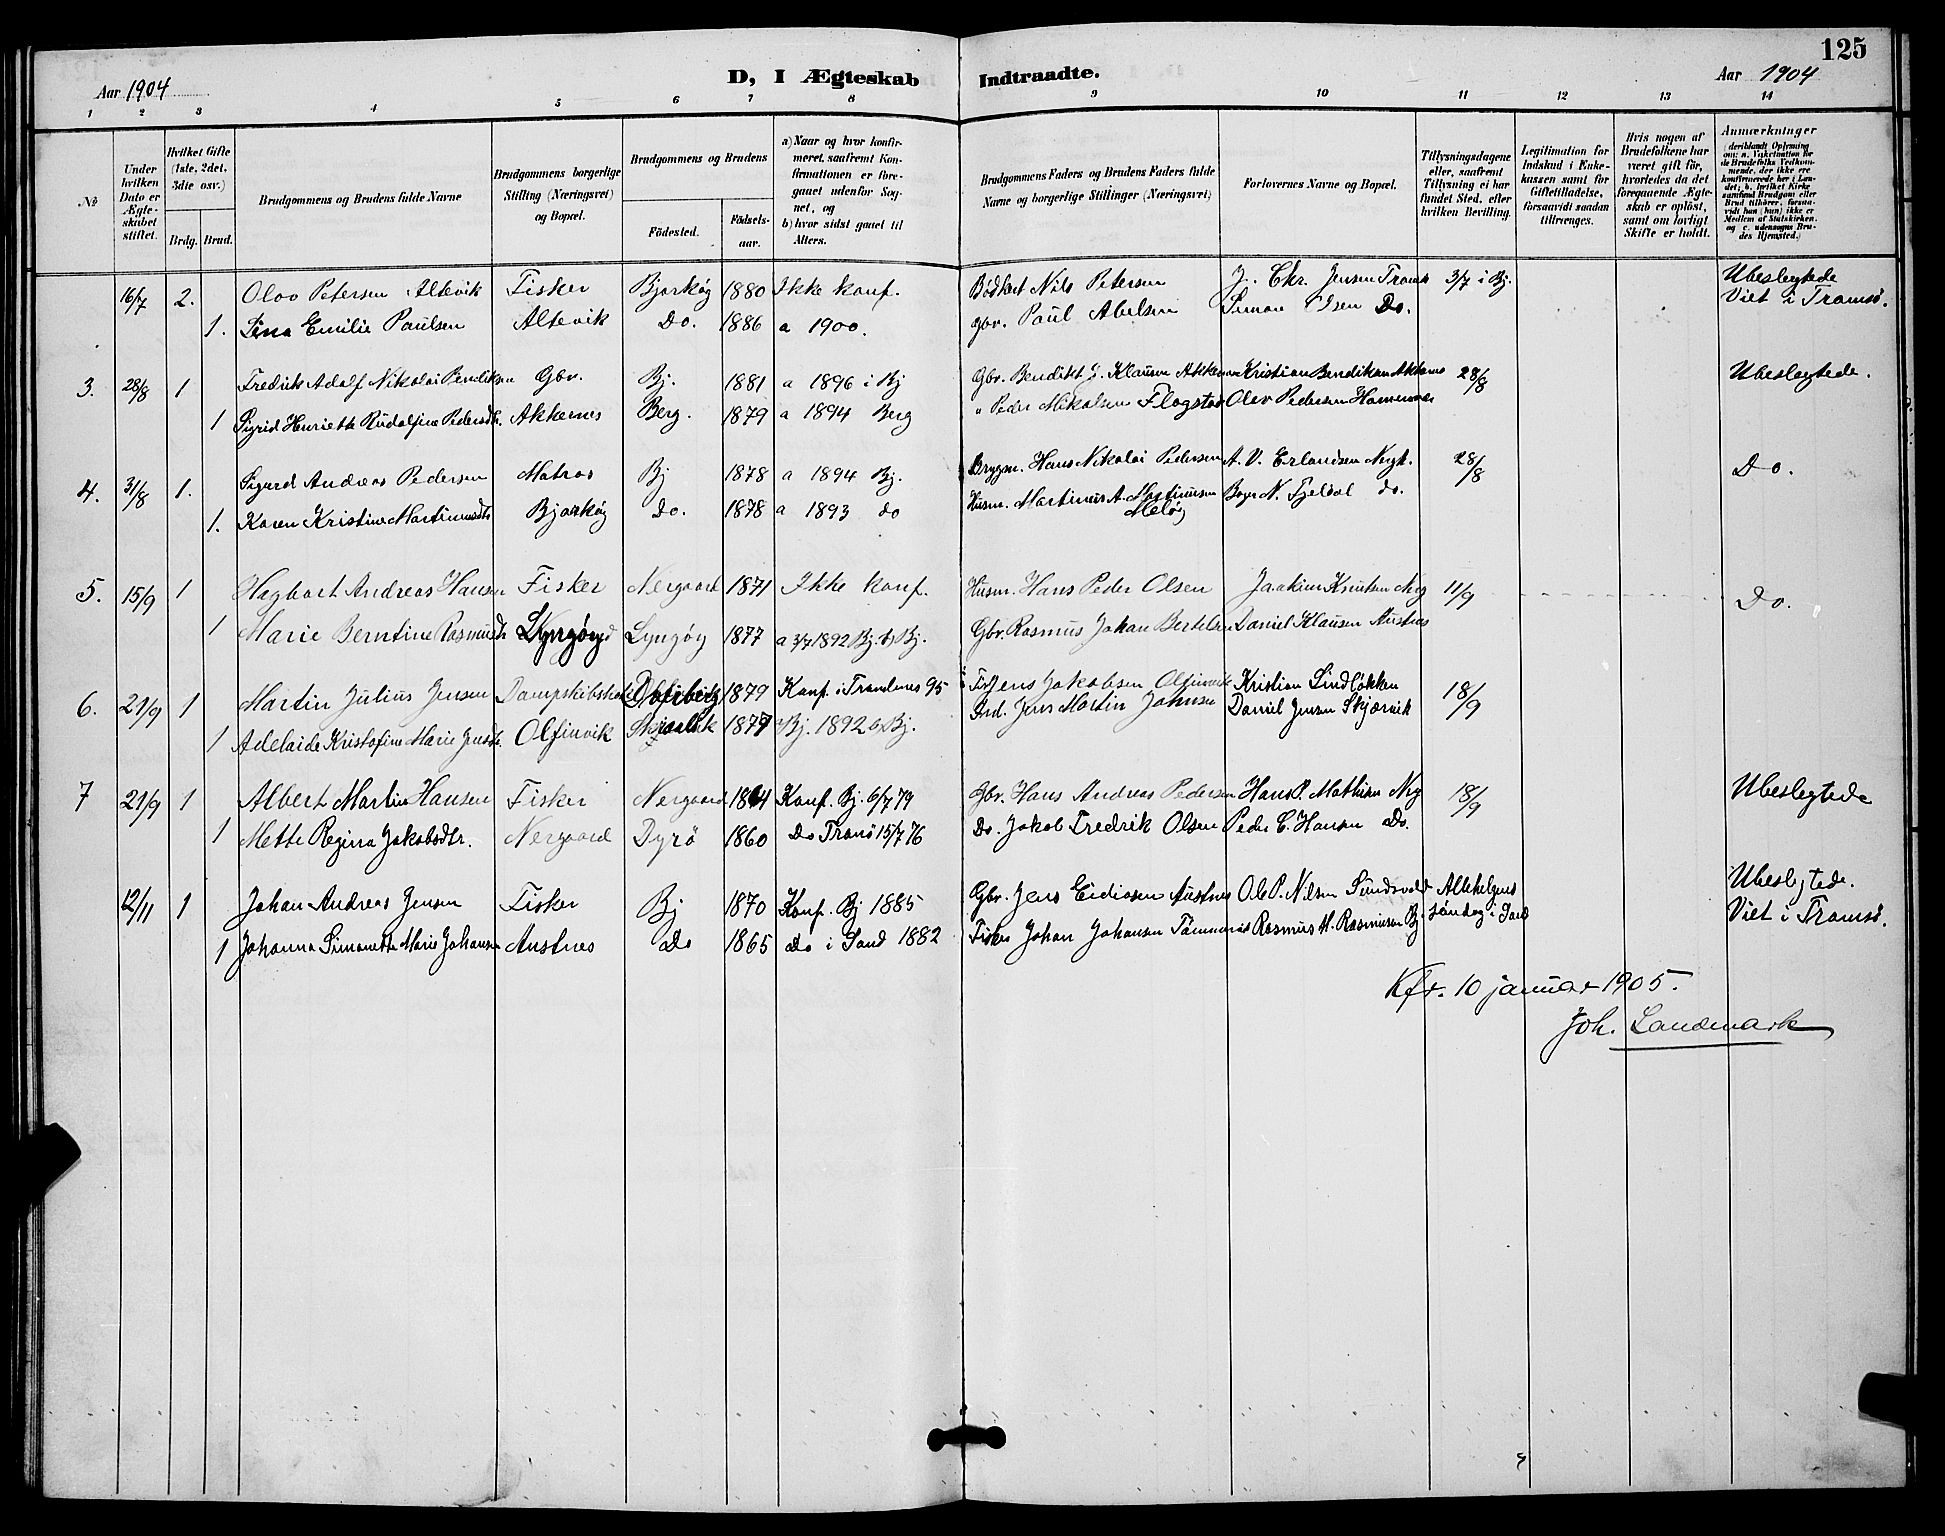 125
Aar 1904
D, I Ægteskab Indtraadte.
Aar 1904
1 2 3 4 5 6 7 8 9 10 11 12 13 14
No
Under hvilken Dato er Ægteskabet stiftet.
Hvilket Gifte (1ste, 2det, 3die osv.)
Brdg. Brud.
Brudgommens og Brudens fulde Navne
Brudgommens borgerlige Stilling (Næringsvei) og Bopæl.
Brudgommens og Brudens
Födested.
Födselsaar.
a) Naar og hvor konfirmeret, saafremt Konfirmationen er foregaaet udenfor Sognet, og
b) hvor sidst gaaet til Alters.
Brudgommens Faders og Brudens Faders fulde Navne og borgerlige Stillinger (Næringsvei)
Forlovernes Navne og Bopæl.
Tillysningsdagene eller, saafremt Tillysning ei har fundet Sted, efter hvilken Bevilling.
Legitimation for Indskud i Enkekassen samt for Giftetilladelse, forsaavidt saadan tiltrænges.
Hvis nogen af Brudefolkene har været gift för, hvorledes da det foregaaende Ægteskab er oplöst, samt om lovligt Skifte er holdt.
Anmærkninger (deriblandt Oplysning om: a. Vakcination for de Brudefolks Vedkommende, der ikke ere konfirmerede her i Landet; b. hvilket Kirkesamfund Brudgom eller Brud tilhörer, forsaavidt han (hun) ikke er Medlem af Statskirken, og c. udensogns Brudes Hjemsted.)
16/7 2. Olav Petersen Altevik Fisker Bjarköy 1880 Ikke konf. Bödker Nils Petersen J. Chr. Jensen Tromsö 3/7 i Bj. Ubeslegtede
1. Sina Emilie Paulsen Altevik Do. 1886 a 1900. Gbr. Paul Abelsen Simon Olsen Do. Viet i Tromsö.
3. 28/8 1 Fredrik Adolf Nikolai Bendiksen Gbr. Bj. 1881 a 1896 i Bj Gbr. Bendikt J. Klausen Akkernes Kristian Bendiksen Akkernes 28/8 Ubeslegtede.
1 Sigrid Henriette Rudolfine Pedersdtr. Akkernes Berg. 1879 a 1894 Berg " Peder Mikalsen Flagstad Olav Pedersen Hamennes
4. 31/8 1. Sigurd Andreas Pedersen Matros Bj 1878 a 1894 Bj. Brygm. Hans Nikolai Pedersen A. V. Erlandsen Nergd. 28/8 Do.
1. Karen Kristine Martinusdtr Bjarköy Do. 1878 a 1893 do Husm. Martinus A. Martinussen Melöy N. Fjeldal do.
5. 15/9 1 Hagbart Andreas Hansen Fisker Nergaard 1871 Ikke konf. Husm. Hans Peder Olsen Joakim Knutsen Nerg 11/9 Do.
1 Marie Berntine Rasmusdtr Lyngöy 1877 a 3/7 1892 Bj. b Bj. Gbr. Rasmus Johan Bertelsen Daniel Klausen Austnes
6. 21/9 1 Martin Julius Jensen 1879 Konf. i Trondenes 95 Jens Jakobsen Olfinvik Kristian Lindløkken 18/9
1 Adelaide Kristofine Marie Jensdtr. Olfinvik 1877 a Bj. 1892 b Bj. Ind. Jens Martin Johnsen Daniel Jensen Skjærvik
7 21/9 1 Albert Martin Hansen Fisker Nergaard 1864 Konf. Bj. 6/7 79 Gbr. Hans Andreas Pedersen Hans P. Mathisen Nerg 18/9 Ubeslegtede
1 Mette Regina Jakobsdtr. Nergaard Dyrö 1860 Do Tranö 15/7 76 Do. Jakob Fredrik Olsen Peder C. Hansen Do.
12/11 1 Johan Andreas Jensen Fisker Bj 1870 Konf. Bj 1885 Gbr. Jens Eidissen Austnes Ole P. Nilsen Sundsvold Allehelgens Ubeslegtede.
1 Johanna Simonette Marie Johansen Austnes Do 1865 Do i Sand 1882 Fisker Johan Johansen Tömmernes Rasmus M. Rasmussen Bj. söndag i Sand Viet i Tromsö.
Kfr. 10 januar 1905.
Joh. Landmark